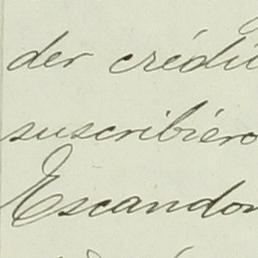 der crédi
suscribiero
Escandon